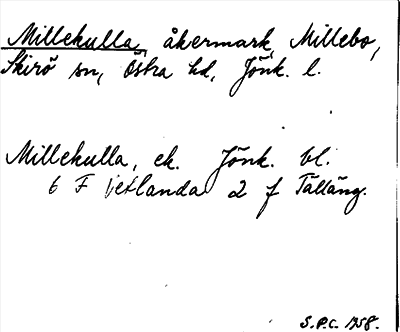 Millekulla, åkermark, Millebo,
Skirö sn, Östra hd, Jönk. l.
Millekulla, ek. Jönk. bl.
6 F Vetlanda 2 f Tälläng.
S.P.C. 1958.